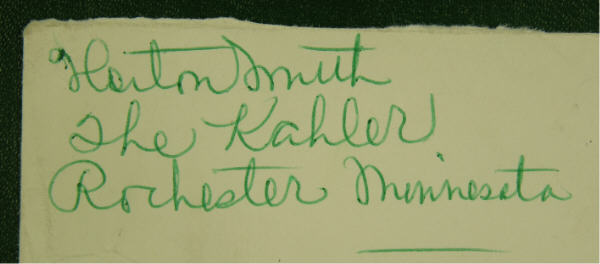 Horton Smith
The Kahler
Rochester Minnesota